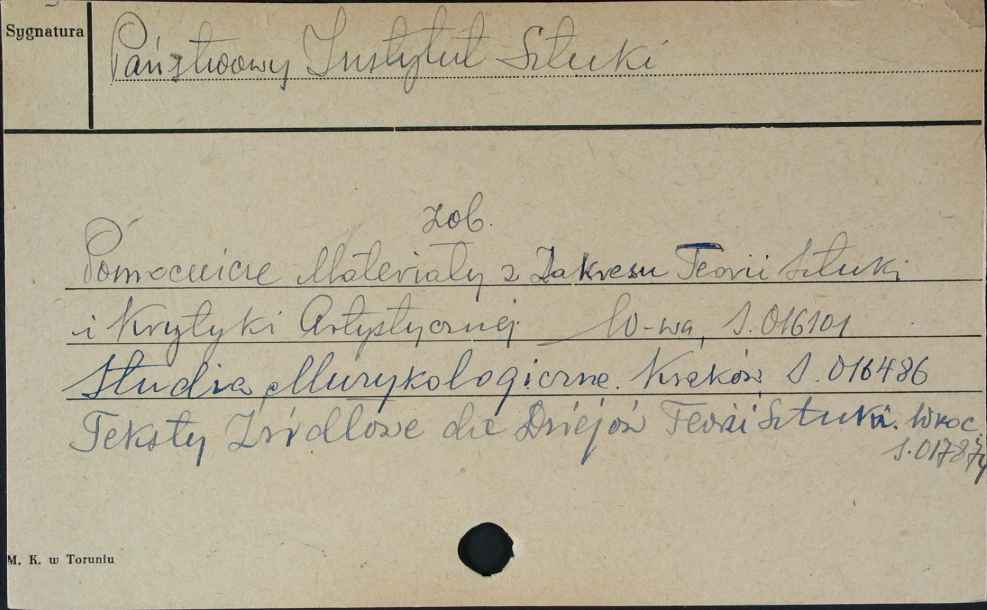 Sygnatura
Państwowy Instytut Sztuki
zob.
Pomocnicze Materiały z Zakresu Teorii Sztuki
i Krytyki Artystycznej W-wa, S.016101
Studia Muzykologiczne. Kraków S.016486
Teksty Źródłowe do Dziejów Teorii Sztuki. Wroc
S.01787
M. K. w Toruniu